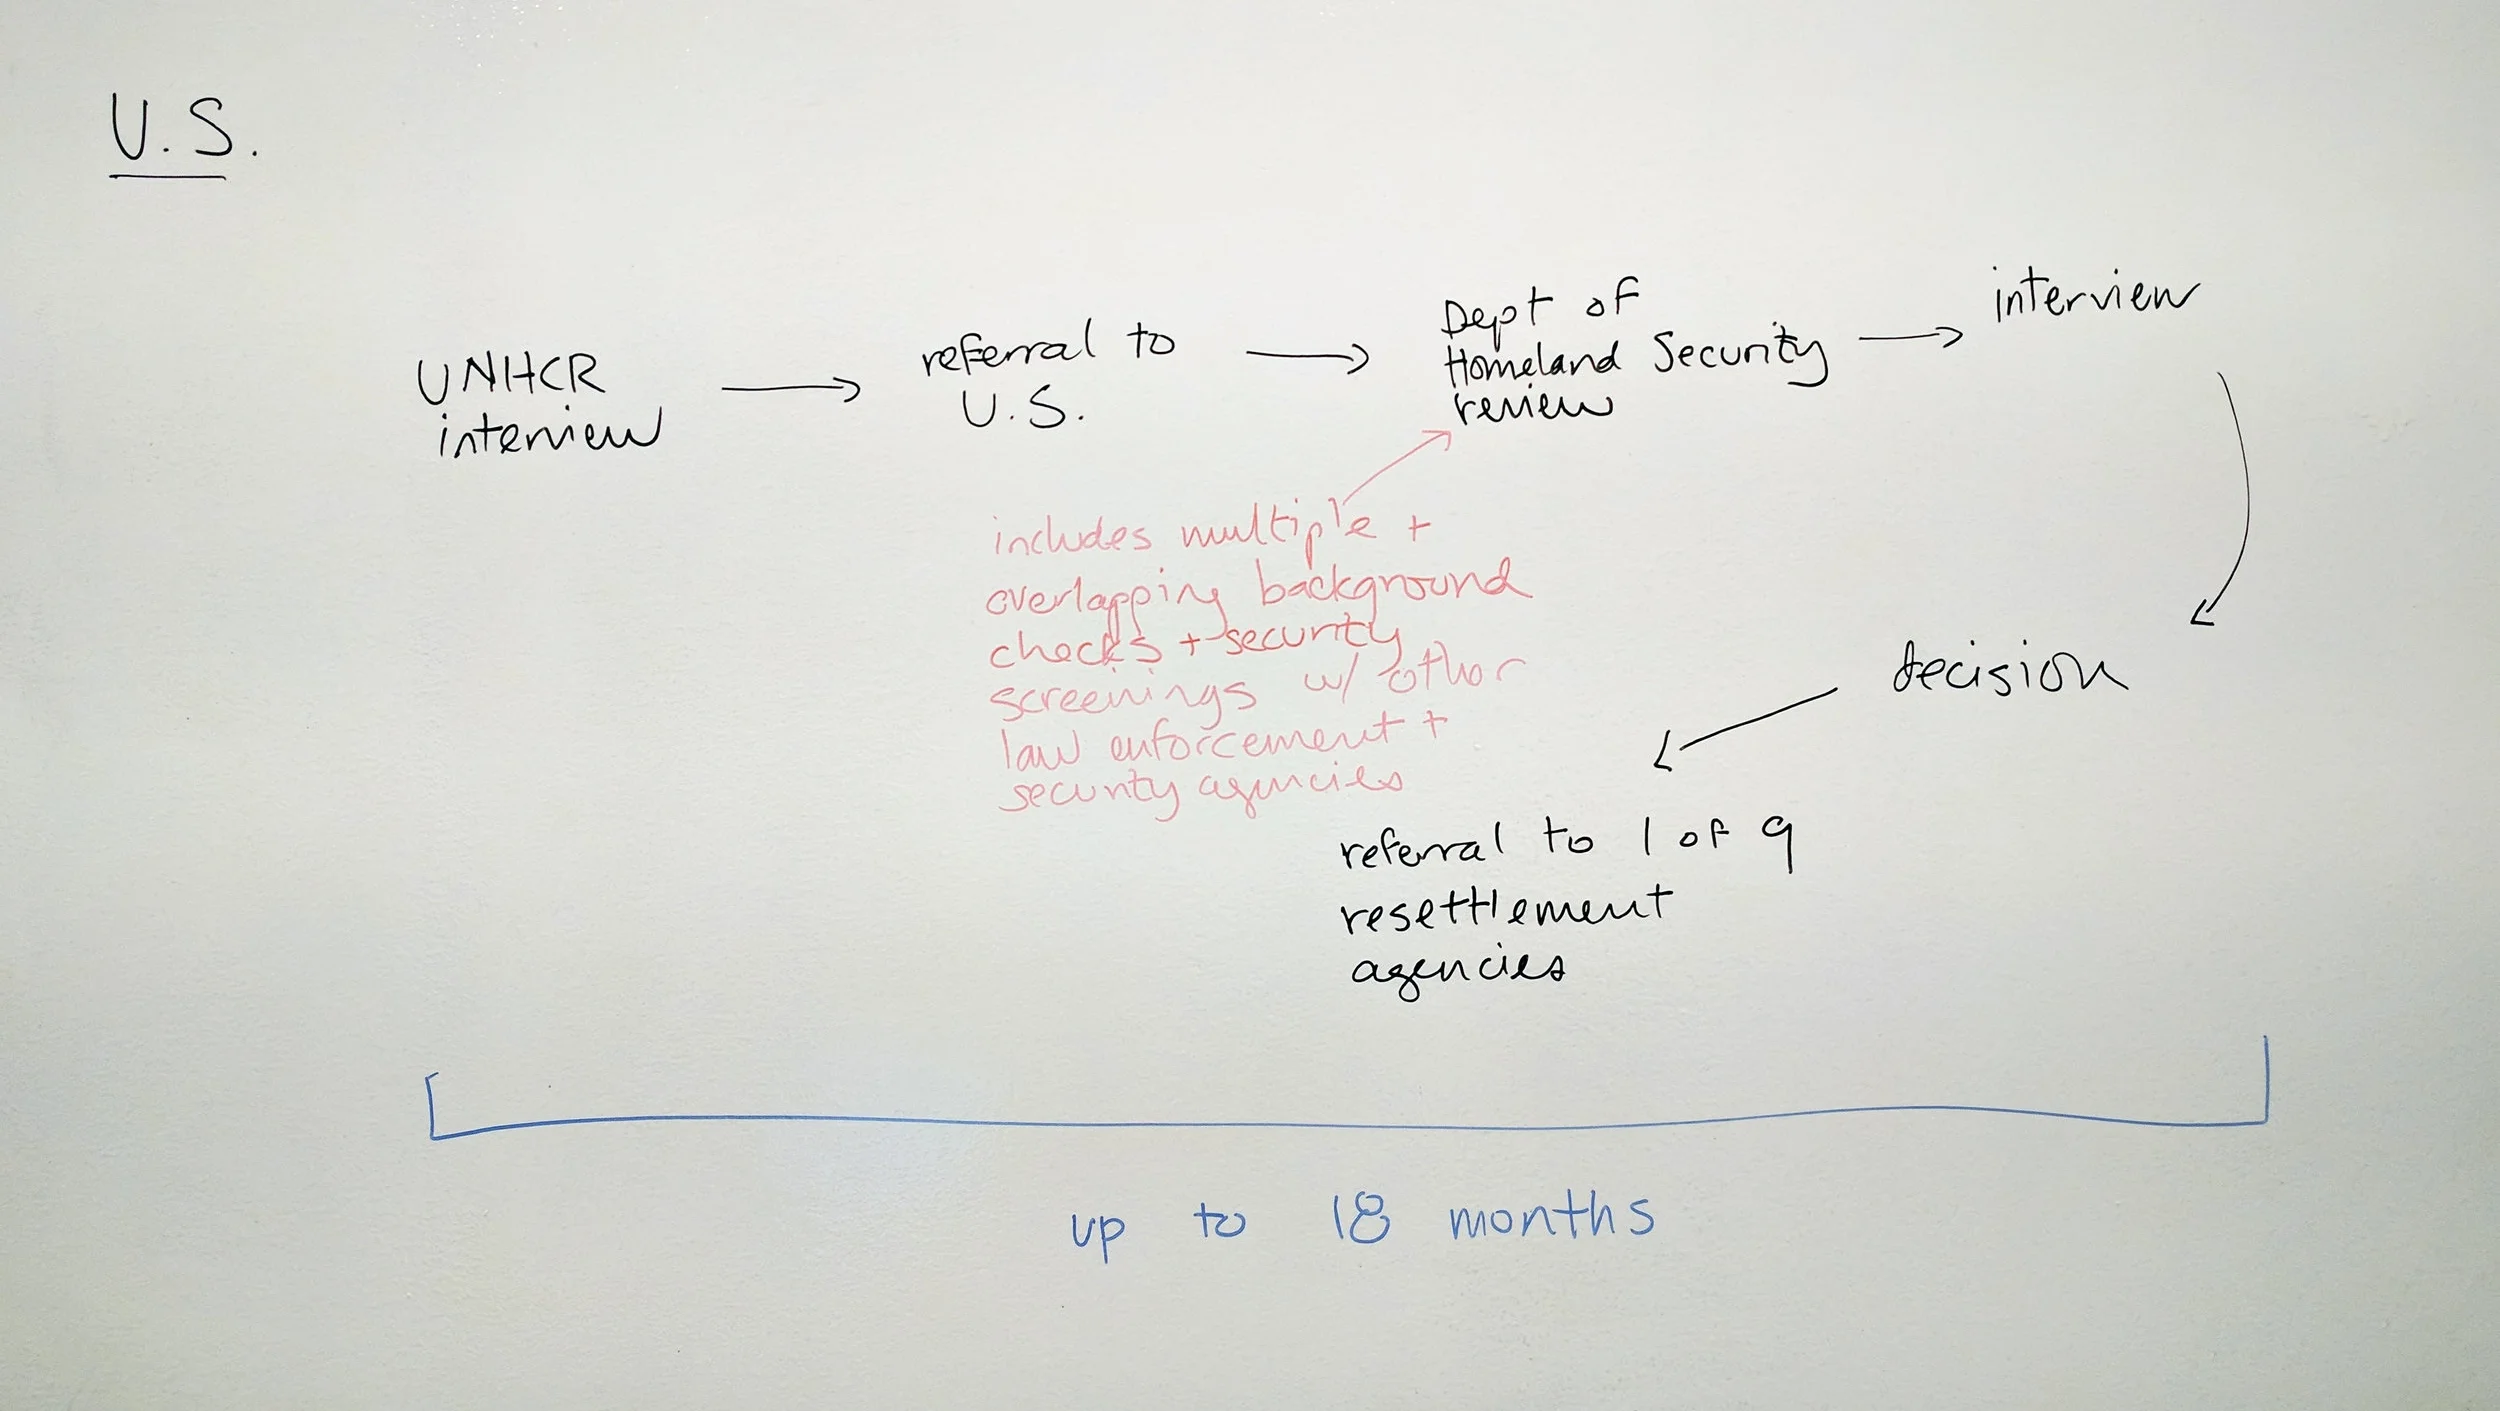 U.S.
UNHCR
interview
referral to
U.S.
Dept of
Homeland Security
review
interview
includes multiple +
overlapping background
checks + security
screenings w/ other
law enforcement +
security agencies
decision
referral to 1 of 9
resettlement
agencies
up to 18 months